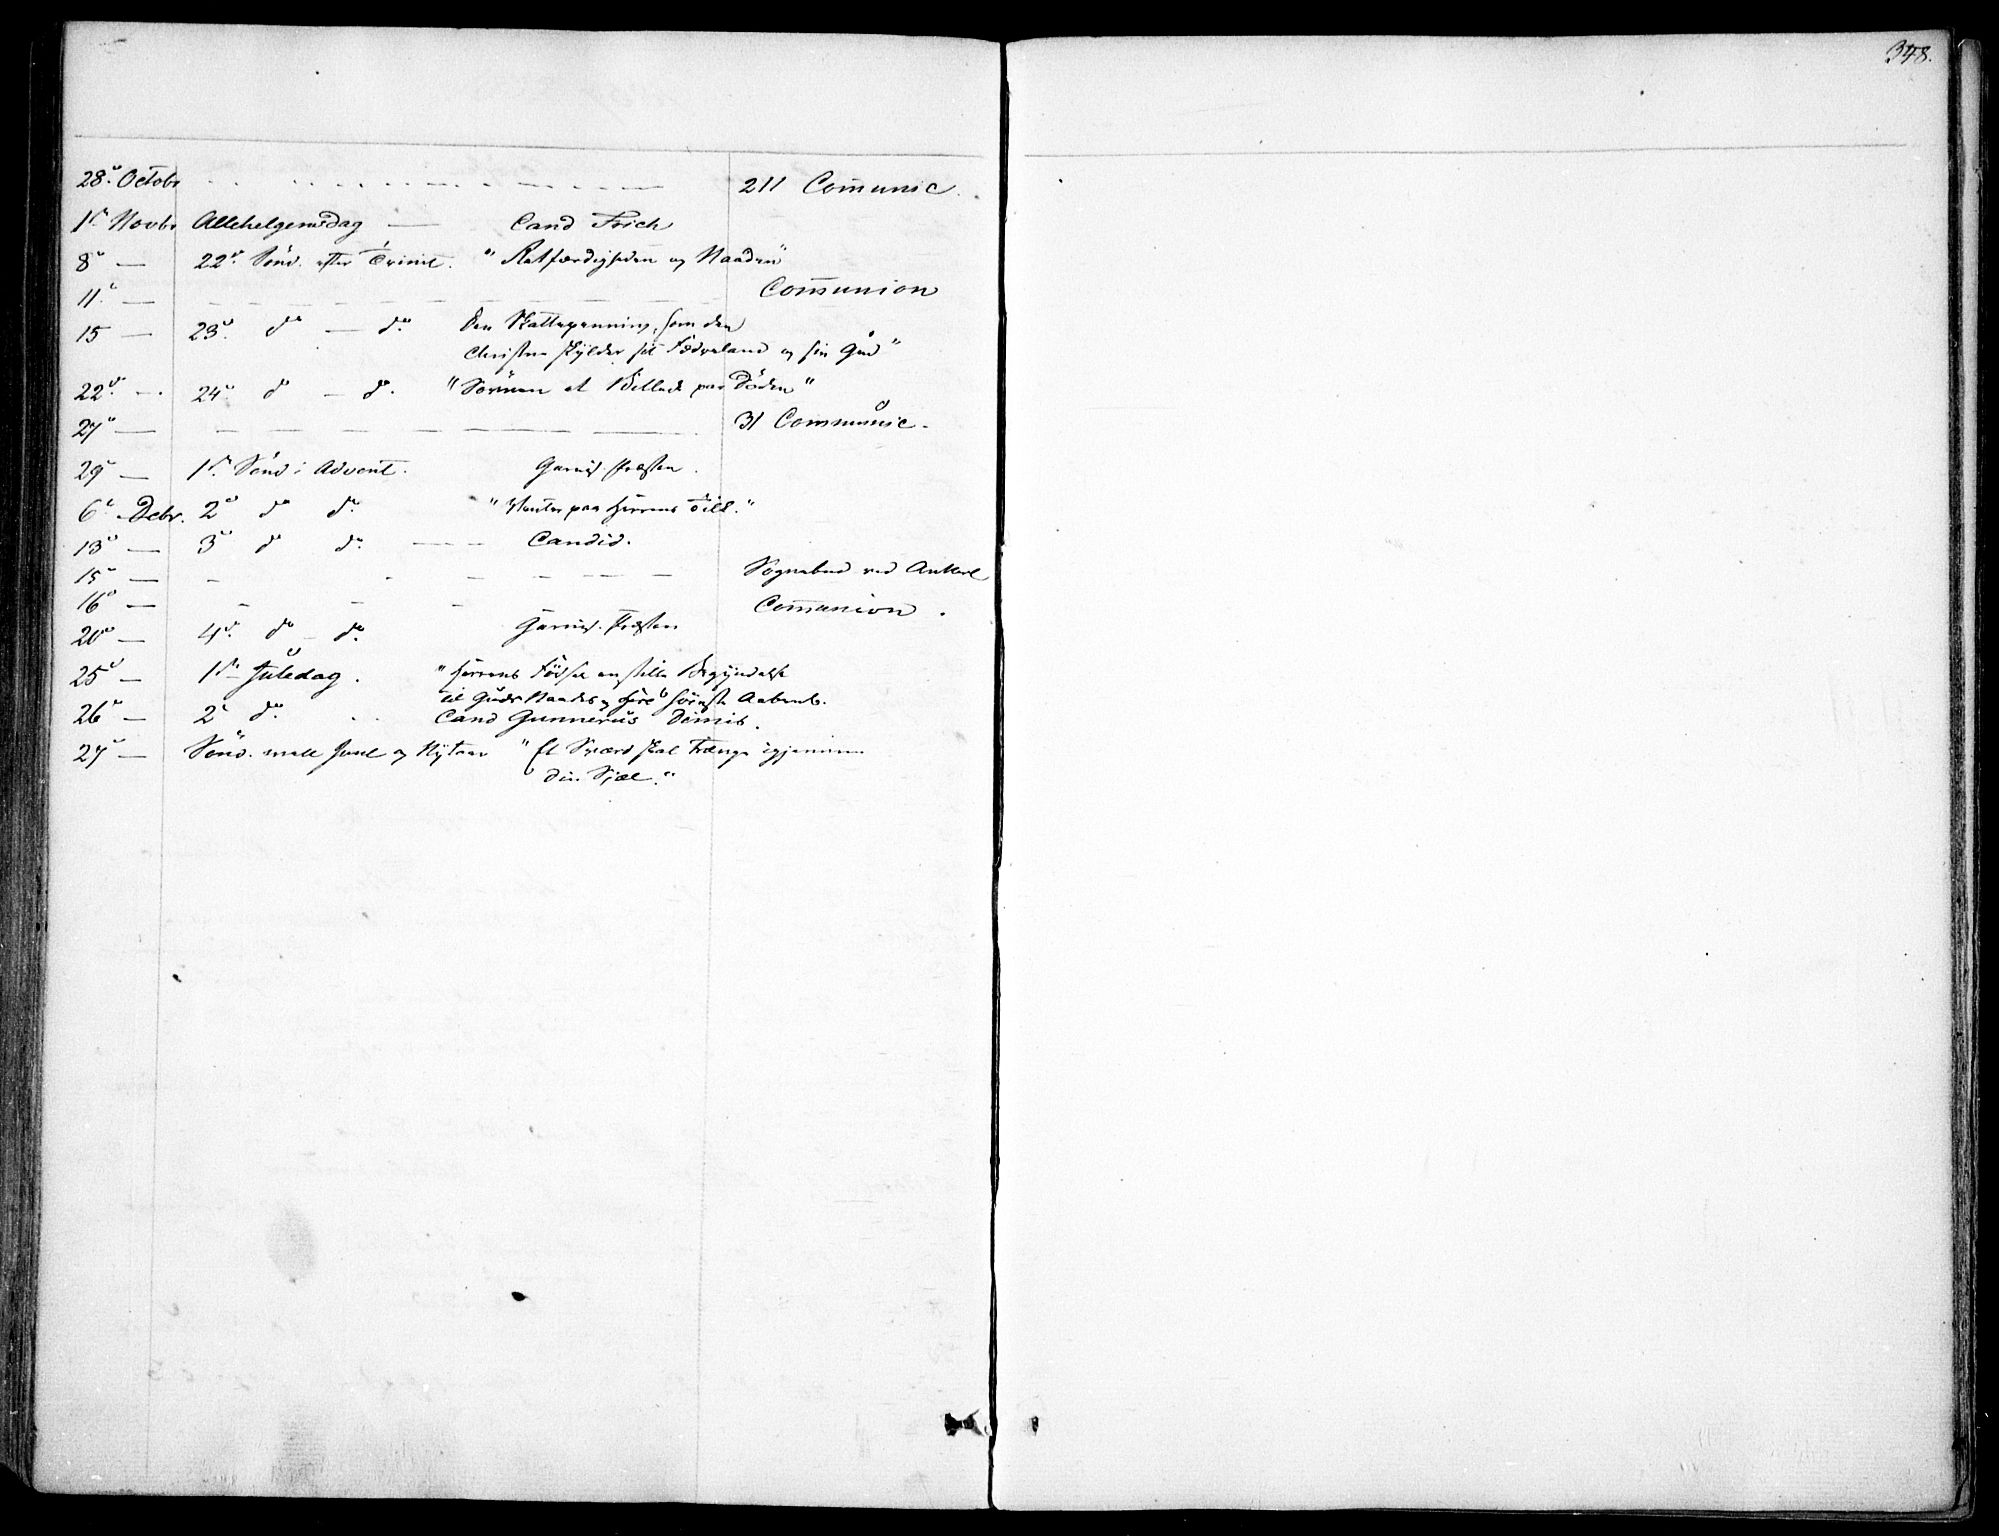 348.
28de Octobr 211 Communic.
1ste Novbr Allehelgensdag — Cand Frich
8de — 22de Sønd. efter Trinit. "Retfærdigheden og Naaden"
11te — Communion
15 — 23de do — do Den Skattepenning, som den
Christne skylder sit Fædreland og sin Gud"
22de — 24de do — do. "Søvnen et Billede paa Døden"
27de — 31 Communic.
29de — 1ste Sønd i Advent. Garnis. Præsten.
6te Debr. 2den do do. "Venter paa Herrens Tid."
13de — 3die do do. — Candid.
15de — Sognebud ved
16de — Communion.
20de — 4de do — do. Garnis. Præsten
25de — 1ste Juledag. "Herrens Fødsel en stille Begyndelse
til Guds Naades og
26de — 2den do. Cand Gunnerus Dimis.
27de — Sønd. mell Juul og Nytaar "Et Sværd skal trænge igjennem
din Sjæl."